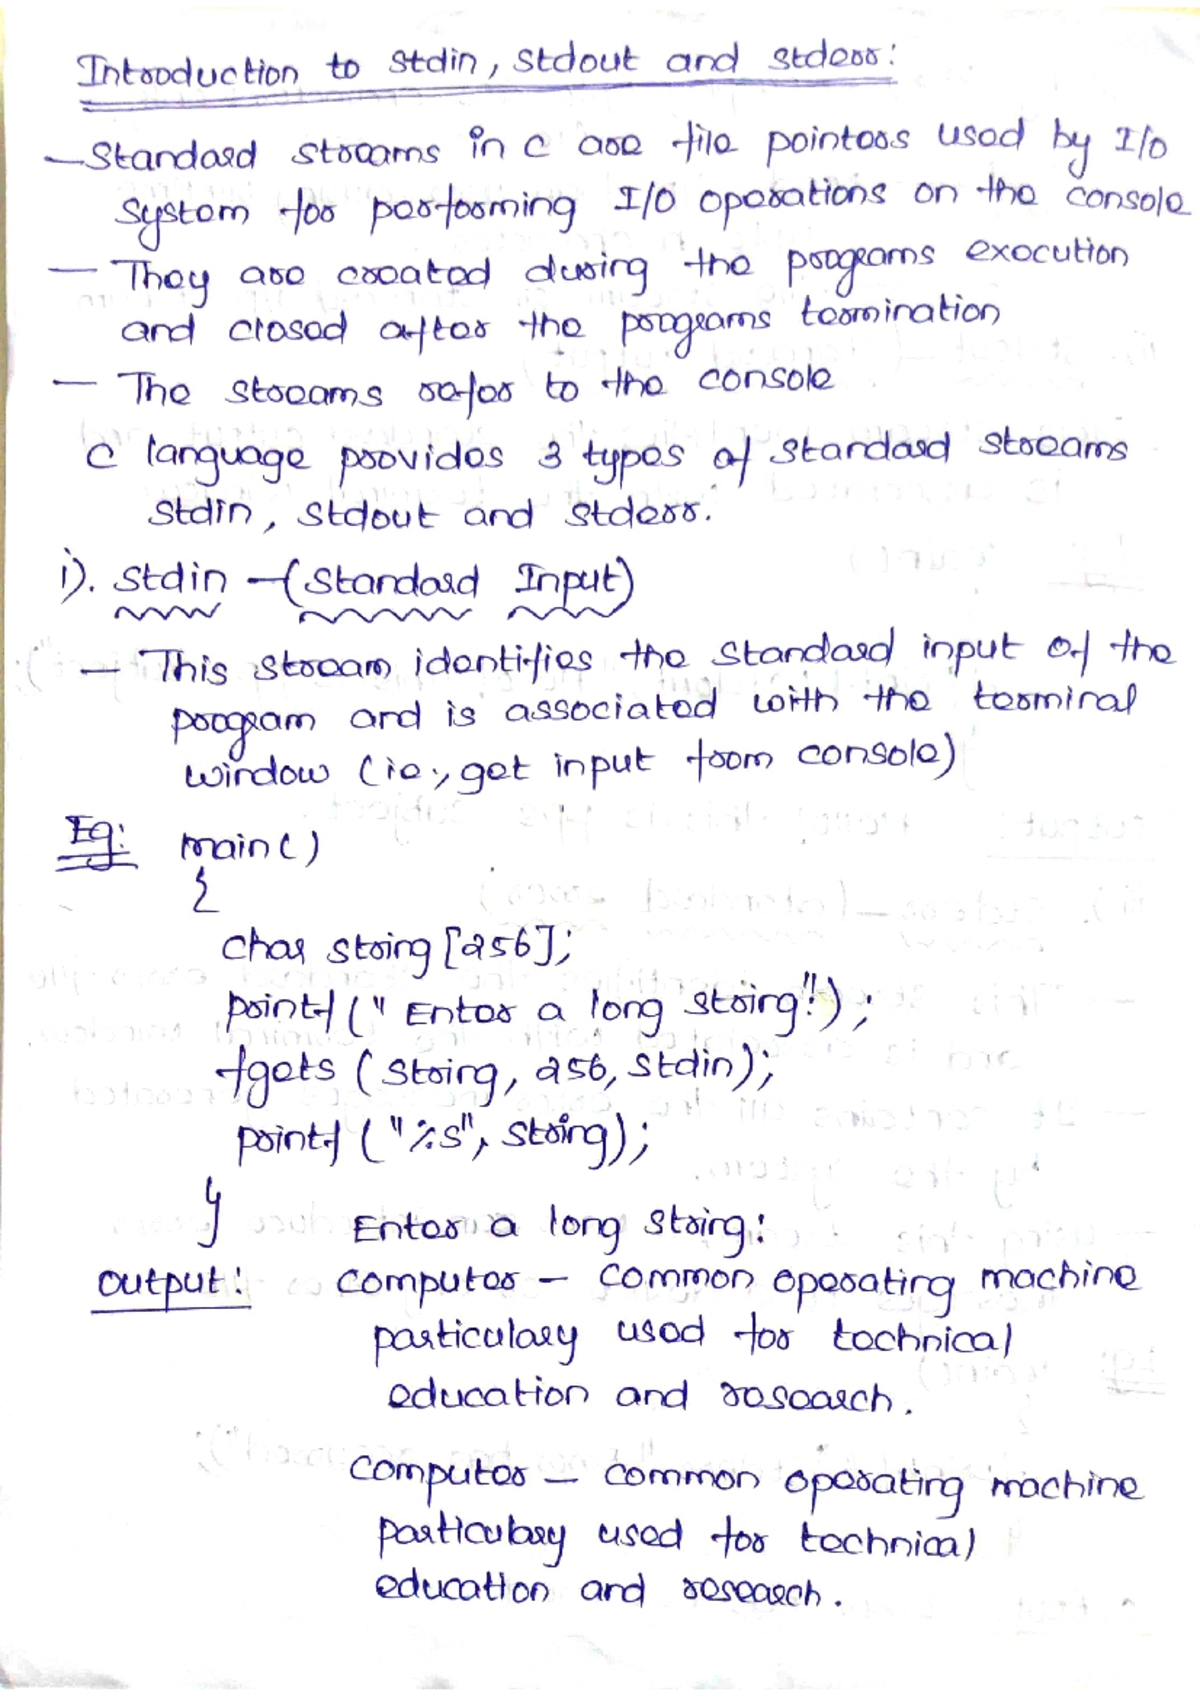 Introduction to stdin, stdout and stderr:
– Standard streams in C are file pointers used by I/O
system for performing I/O operations on the console
– They are created during the programs execution
and closed after the programs termination
– The streams refer to the console
C language provides 3 types of standard streams
stdin, stdout and stderr.
i). stdin – (Standard Input)
– This stream identifies the standard input of the
program and is associated with the terminal
window (ie., get input from console)
Eg: main()
{
char string [256];
printf (" Enter a long string!");
fgets (string, 256, stdin);
printf ("%s", string);
}
Enter a long string:
output: computer – common operating machine
particulary used for technical
education and research.
computer – common operating machine
particulary used for technical
education and research.